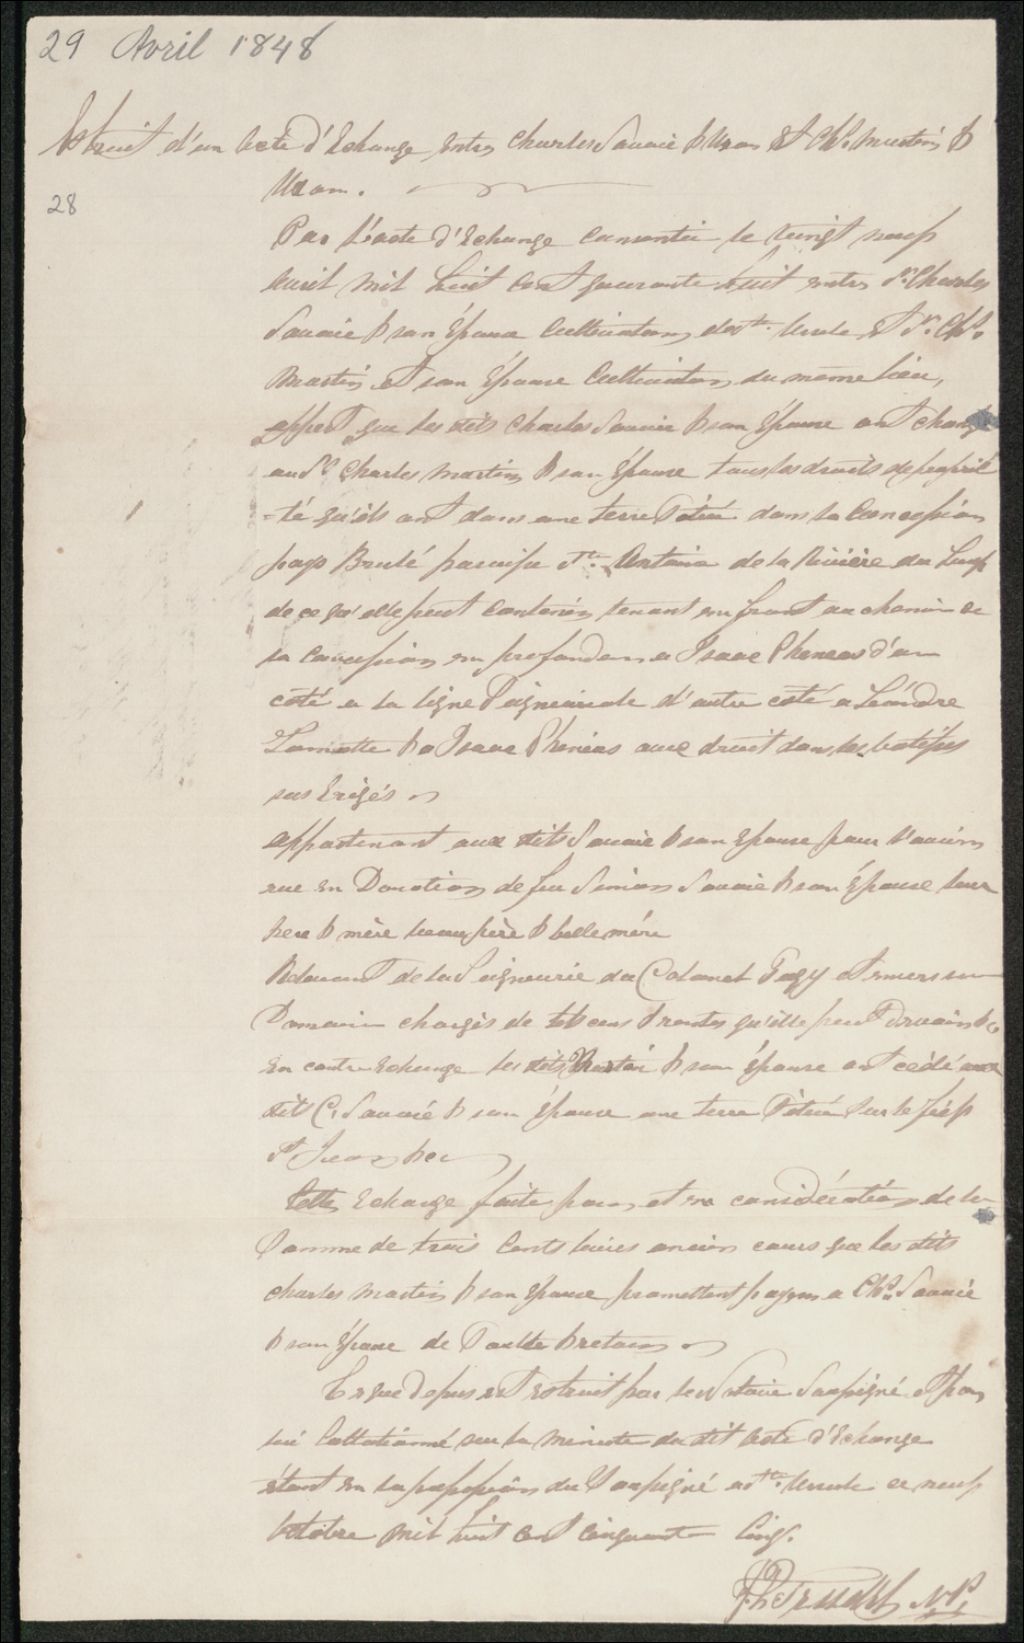 29 Avril 1848
Extrait d'un Acte d'Echange entre Charles Savoie & Uxor et Chs. Martin &
Uxor.
28
Par l'acte d'Echange consentie le vingt neuf
avril mil huit cent quarante huit entre Sr. Charles
Savoie & son Épouse Cultivateur de Ste. Ursule et Sr. Chs.
Martin et son Épouse Cultivateur du même lieu,
appert que les dits Charles Savoie & son Épouse ont changé
au Sr Charles Martin & son Épouse tous les droits de proprié
-té qu'ils ont dans une terre située dans la Concession
pays Brulé paroisse St. Antoine de la Rivière du Loup
de ce qu'elle peut contenir, tenant en front au chemin de
la Concession en profondeur a Isaac Pheneas d'un
coté a la ligne Seigneuriale d'autre coté a Léandre
Lamotte & a Isaac Phenéas avec droit dans les batisses
sus Erigés
appartenant aux dits Savoie & son Épouse pour l'avoir
eue en Donation de feu Simion Savoie & son Épouse leur
père & mère beau père & belle mère
Relevant de la Seigneurie du Colonel Gugy et envers son
Domaine chargés de tels cens & rentes qu'elle peut devoir &c
En contre Echange les dits Martin & son Épouse ont cédé aux
dit C. Savoie & son Épouse une terre située sur le fief
St Jean &c
Cette Echange faite pour et en considération de la
Somme de trois Cents livres ancien cours que les dits
Charles Martin & son Épouse promettent payer a Chs. Savoie
& son Épouse de Soulte & retour
Ce que dessus est extrait par le Notaire Soussigné et par
lui Collationné sur la minute du dit Acte d'Echange
étant en la possession du Soussigné a Ste. Ursule ce neuf
Octobre mil huit cent cinquante Cinq.
N.P.